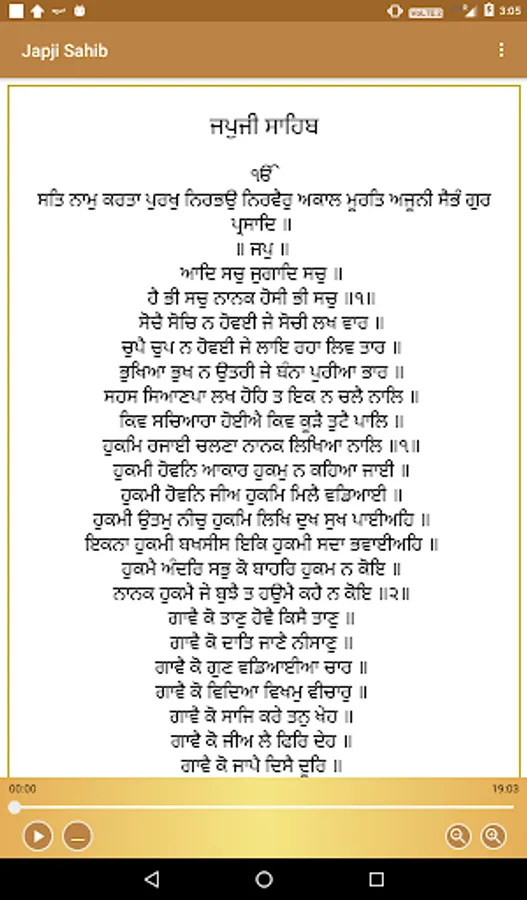 VoLTE 2
3:05
Japji Sahib
ਜਪੁਜੀ ਸਾਹਿਬ
ੴ
ਸਤਿ ਨਾਮੁ ਕਰਤਾ ਪੁਰਖੁ ਨਿਰਭਉ ਨਿਰਵੈਰੁ ਅਕਾਲ ਮੂਰਤਿ ਅਜੂਨੀ ਸੈਭੰ ਗੁਰ
ਪ੍ਰਸਾਦਿ ॥
॥ ਜਪੁ ॥
ਆਦਿ ਸਚੁ ਜੁਗਾਦਿ ਸਚੁ ॥
ਹੈ ਭੀ ਸਚੁ ਨਾਨਕ ਹੋਸੀ ਭੀ ਸਚੁ ॥੧॥
ਸੋਚੈ ਸੋਚਿ ਨ ਹੋਵਈ ਜੇ ਸੋਚੀ ਲਖ ਵਾਰ ॥
ਚੁਪੈ ਚੁਪ ਨ ਹੋਵਈ ਜੇ ਲਾਇ ਰਹਾ ਲਿਵ ਤਾਰ ॥
ਭੁਖਿਆ ਭੁਖ ਨ ਉਤਰੀ ਜੇ ਬੰਨਾ ਪੁਰੀਆ ਭਾਰ ॥
ਸਹਸ ਸਿਆਣਪਾ ਲਖ ਹੋਹਿ ਤ ਇਕ ਨ ਚਲੈ ਨਾਲਿ ॥
ਕਿਵ ਸਚਿਆਰਾ ਹੋਈਐ ਕਿਵ ਕੂੜੈ ਤੁਟੈ ਪਾਲਿ ॥
ਹੁਕਮਿ ਰਜਾਈ ਚਲਣਾ ਨਾਨਕ ਲਿਖਿਆ ਨਾਲਿ ॥੧॥
ਹੁਕਮੀ ਹੋਵਨਿ ਆਕਾਰ ਹੁਕਮੁ ਨ ਕਹਿਆ ਜਾਈ ॥
ਹੁਕਮੀ ਹੋਵਨਿ ਜੀਅ ਹੁਕਮਿ ਮਿਲੈ ਵਡਿਆਈ ॥
ਹੁਕਮੀ ਉਤਮੁ ਨੀਚੁ ਹੁਕਮਿ ਲਿਖਿ ਦੁਖ ਸੁਖ ਪਾਈਅਹਿ ॥
ਇਕਨਾ ਹੁਕਮੀ ਬਖਸੀਸ ਇਕਿ ਹੁਕਮੀ ਸਦਾ ਭਵਾਈਅਹਿ ॥
ਹੁਕਮੈ ਅੰਦਰਿ ਸਭੁ ਕੋ ਬਾਹਰਿ ਹੁਕਮ ਨ ਕੋਇ ॥
ਨਾਨਕ ਹੁਕਮੈ ਜੇ ਬੁਝੈ ਤ ਹਉਮੈ ਕਹੈ ਨ ਕੋਇ ॥੨॥
ਗਾਵੈ ਕੋ ਤਾਣੁ ਹੋਵੈ ਕਿਸੈ ਤਾਣੁ ॥
ਗਾਵੈ ਕੋ ਦਾਤਿ ਜਾਣੈ ਨੀਸਾਣੁ ॥
ਗਾਵੈ ਕੋ ਗੁਣ ਵਡਿਆਈਆ ਚਾਰ ॥
ਗਾਵੈ ਕੋ ਵਿਦਿਆ ਵਿਖਮੁ ਵੀਚਾਰੁ ॥
ਗਾਵੈ ਕੋ ਸਾਜਿ ਕਰੇ ਤਨੁ ਖੇਹ ॥
ਗਾਵੈ ਕੋ ਜੀਅ ਲੈ ਫਿਰਿ ਦੇਹ ॥
ਗਾਵੈ ਕੋ ਜਾਪੈ ਦਿਸੈ ਦੂਰਿ ॥
00:00
19:03